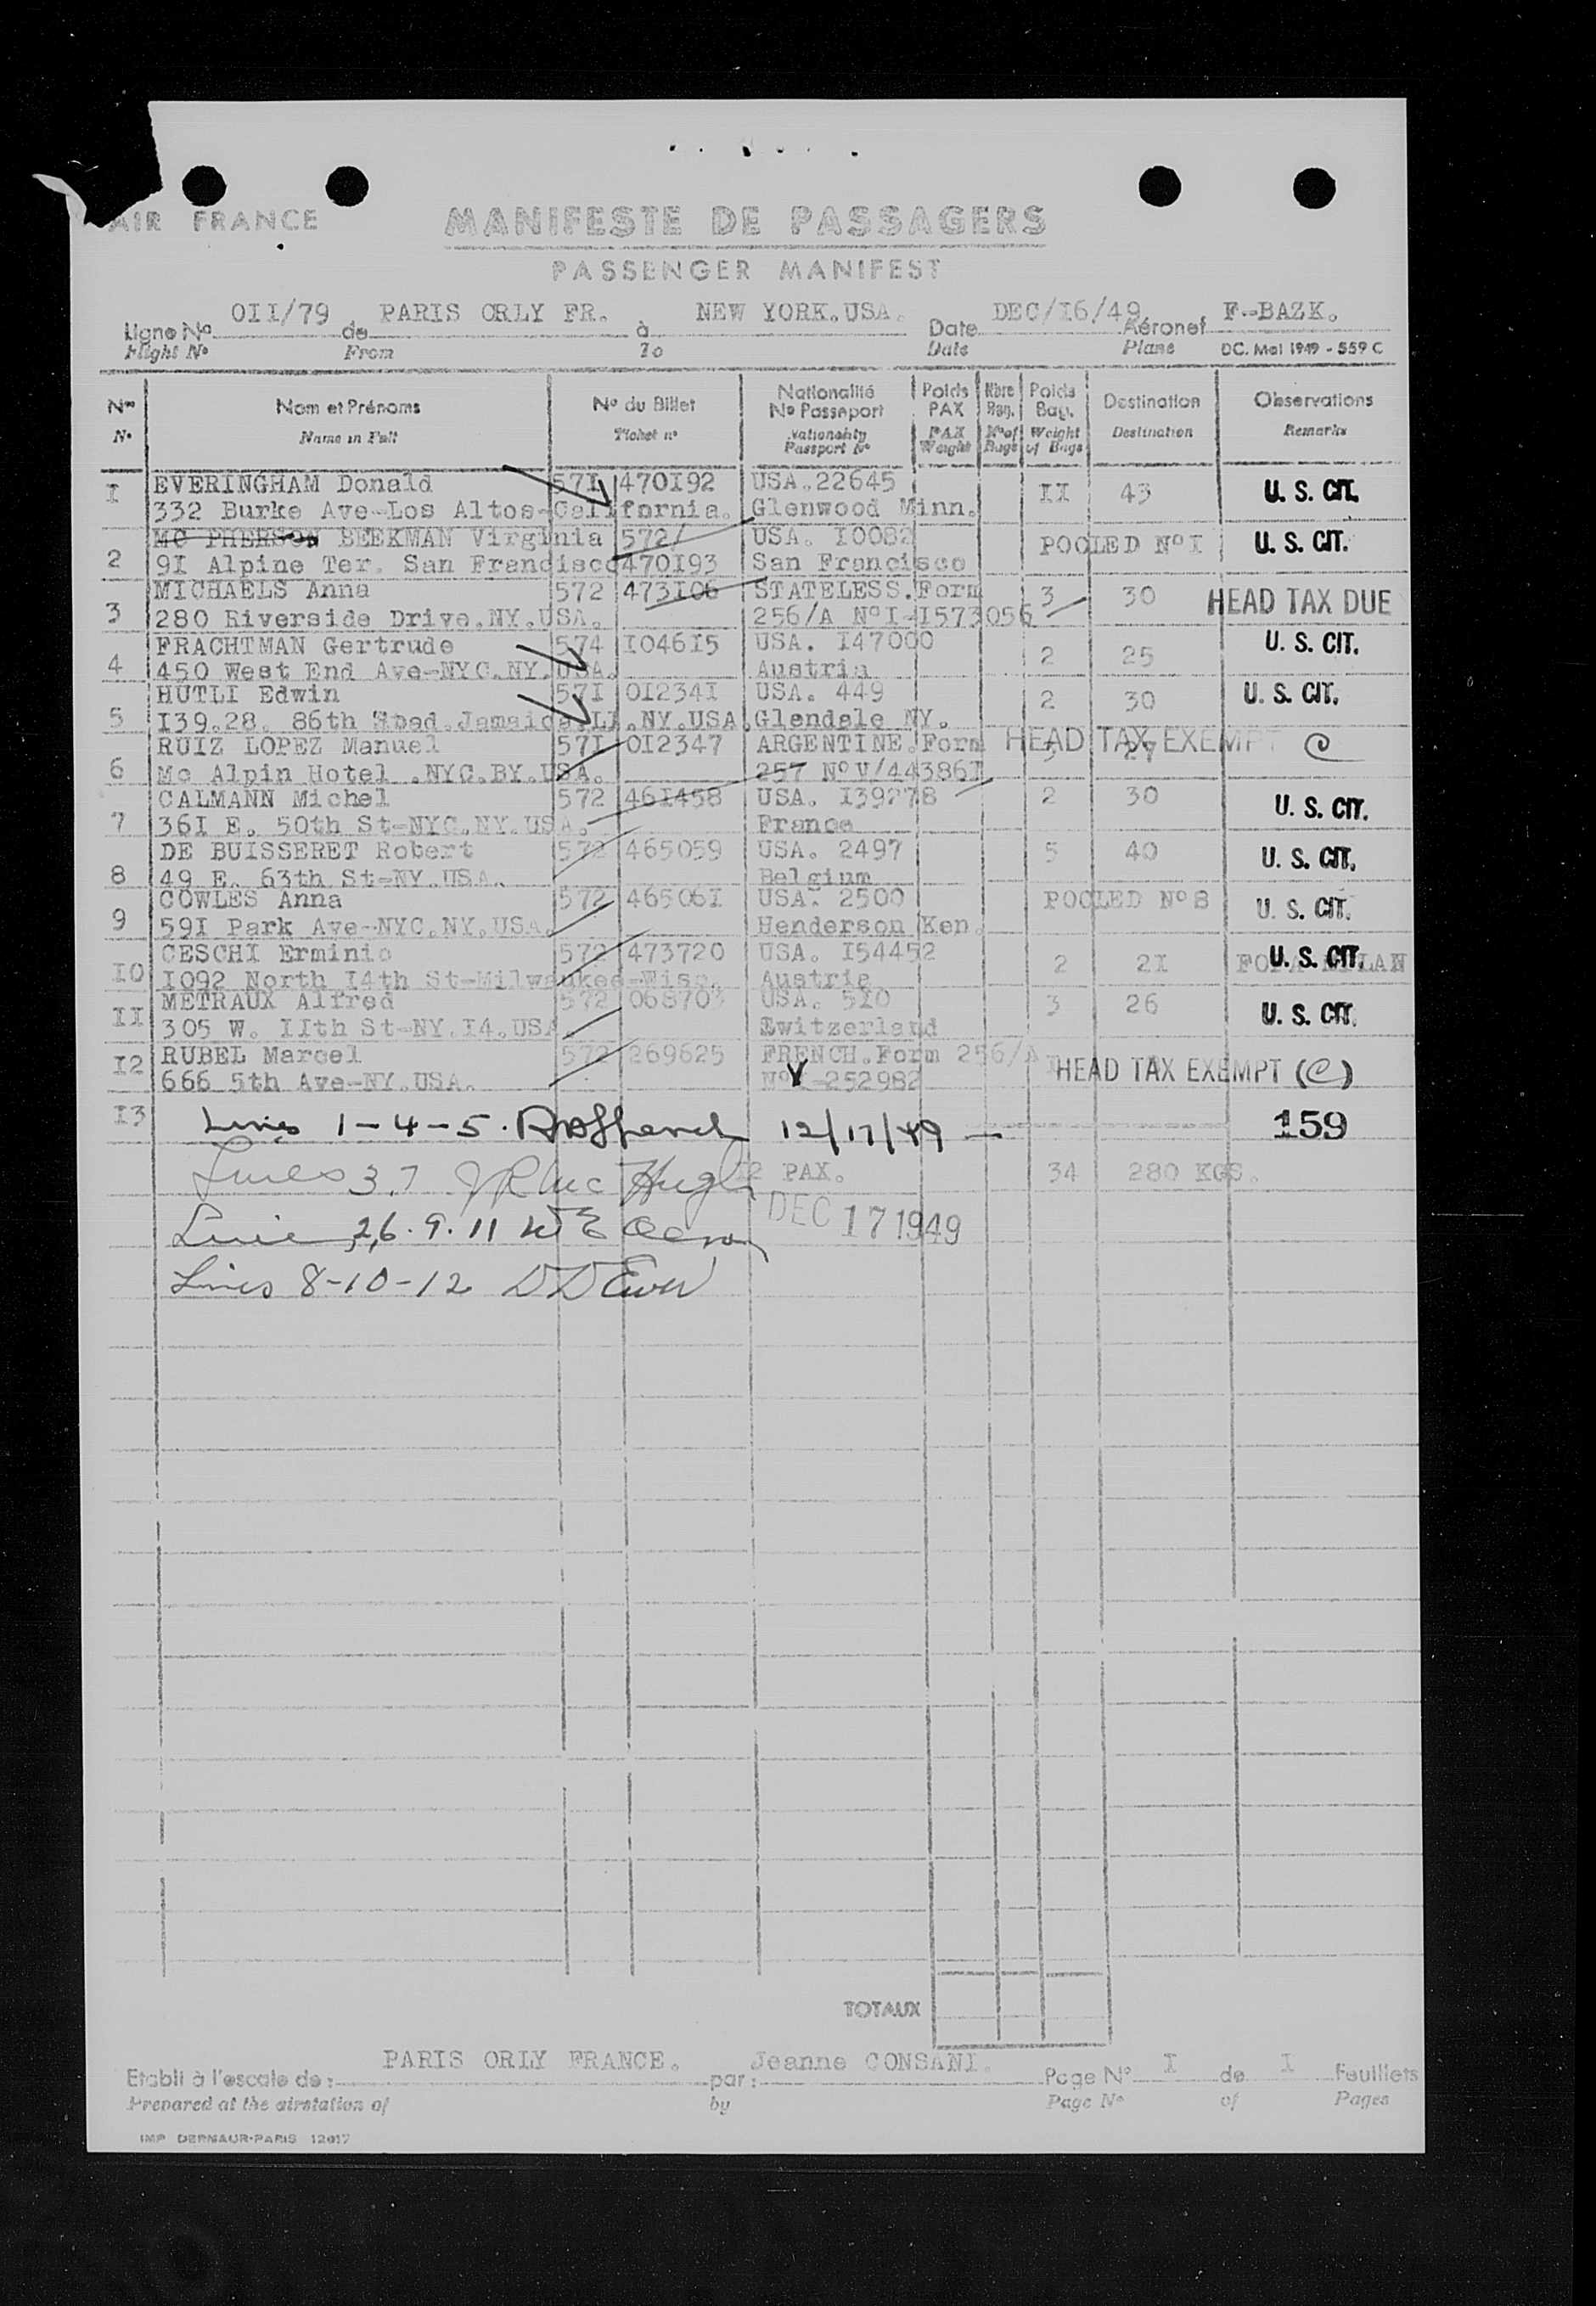 AIR FRANCE
MANIFESTE DE PASSAGERS
PASSENGER MANIFEST
Ligne Nº OII/79 de PARIS ORLY FR. à NEW YORK.USA. Date DEC/I6/49 Aéronef F-BAZK.
Flight Nº From To Date Plane DC. Mai 1949 - 559 C
Nos Nom et Prénoms Nº du Billet Nationalité Nº Passeport Poids PAX Nbre Bag. Poids Bag. Destination Observations
Nº Name in Full Ticket nº Nationality Passport Nº PAX Weight Nº of Bags Weight of Bags Destination Remarks
I EVERINGHAM Donald 57I 470I92 USA.22645 II 43 U. S. CIT.
332 Burke Ave-Los Altos-California. Glenwood Minn.
2 MC PHERSON BEEKMAN Virginia 572/ USA. I0082 POOLED NºI U. S. CIT.
9I Alpine Ter. San Francisco 470I93 San Francisco
3 MICHAELS Anna 572 473I06 STATELESS.Form 3 30 HEAD TAX DUE
280 Riverside Drive.NY.USA. 256/A NºI-I573056
4 FRACHTMAN Gertrude 574 I046I5 USA. I47000 2 25 U. S. CIT.
450 West End Ave-NYC.NY.USA. Austria
5 HUTLI Edwin 57I 0I234I USA. 449 2 30 U. S. CIT.
I39.28. 86th Road.Jamaica.LI.NY.USA. Glendale NY.
6 RUIZ LOPEZ Manuel 57I 0I2347 ARGENTINE.Form 3 27 HEAD TAX EXEMPT C
Mc Alpin Hotel .NYC.BY.USA. 257 NºV/44386I
7 CALMANN Michel 572 46I458 USA. I39278 2 30 U. S. CIT.
36I E. 50th St-NYC.NY.USA. France
8 DE BUISSERET Robert 572 465059 USA. 2497 5 40 U. S. CIT.
49 E. 63th St-NY.USA. Belgium
9 COWLES Anna 572 46506I USA. 2500 POOLED Nº8 U. S. CIT.
59I Park Ave-NYC.NY.USA. Henderson Ken.
I0 CESCHI Erminio 572 473720 USA. I54452 2 2I U. S. CIT.
I092 North I4th St-Milwaukee-Wisc. Austria
II METRAUX Alfred 572 068703 USA. 5I0 3 26 U. S. CIT.
305 W. IIth St-NY.I4.USA. Switzerland
I2 RUBEL Marcel 572 269625 FRENCH.Form 256/A HEAD TAX EXEMPT (C)
666 5th Ave-NY.USA. Nº V-252982
I3 Lines 1-4-5. 12/17/49 — 159
Lines 3.7 I2 PAX. 34 280 KGS.
Line 2,6.9.11 DEC 17 1949
Lines 8-10-12
TOTAUX
Etabli à l'escale de : PARIS ORLY FRANCE. par : Jeanne CONSANI. Page Nº I de I Feuillets
Prepared at the airstation of by Page Nº of Pages
IMP DERNAUR-PARIS 12017